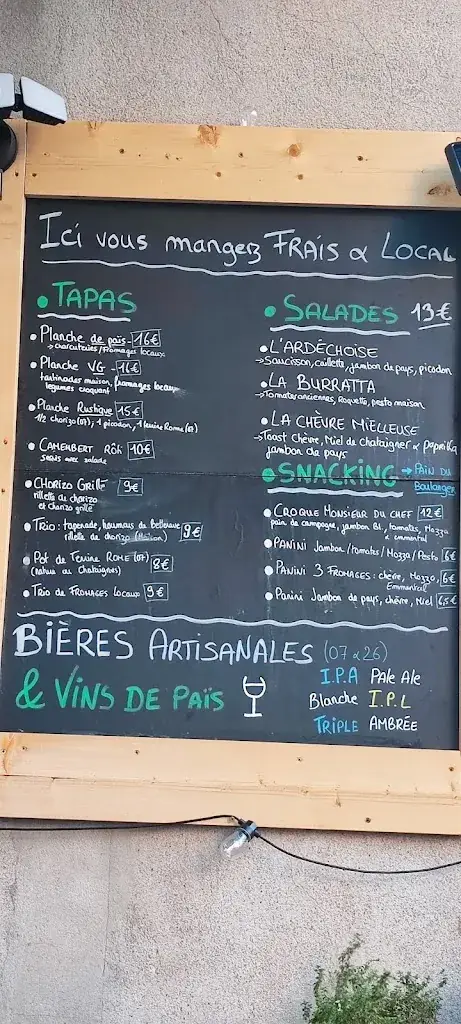 Ici vous mangez FRAIS & LOCAL
• TAPAS
• Planche de païs - 16€
→ charcuteries/fromages locaux
• Planche VG - 16€
tartinades maison, fromages locaux
legumes croquant
• Planche Rustique 15€
1/2 chorizo (07), 1 picodon, 1 terrine Rome (07)
• CAMEMBERT Rôti 10€
servis avec salade
• CHORIZO Grillé 9€
rillette de chorizo
et chorizo grillé
• TRIO: tapenade, houmous de Bellevue 9€
rillette de chorizo (Maison)
• Pot de Terrine ROME (07) 8€
(nature ou Chataignes)
• Trio de FROMAGES Locaux 9€
• SALADES 13€
• L'ARDÉCHOISE
→ Saucisson, caillette, jambon de pays, picodon
• LA BURRATTA
→ Tomates anciennes, Roquette, pesto maison
• LA CHÈVRE MIELLEUSE
→ Toast Chèvre, Miel de Chataignier & paprika
jambon de pays
• SNACKING → PAIN DU
Boulanger
• CROQUE MONSIEUR DU CHEF 12€
pain de campagne, jambon Bl., tomates, Mozza
& emmental
• PANINI Jambon/tomates/Mozza/Pesto 6€
• PANINI 3 FROMAGES: chèvre, Mozza, 6€
Emmental
• Panini Jambon de pays, chèvre, Miel 6,5€
BIÈRES ARTISANALES (07 & 26)
& VINS DE PAÏS
I.P.A PALE ALE
Blanche I.P.L
TRIPLE AMBRÉE